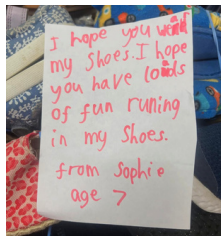 I hope you
my Shoes. I hope
you have loads
of fun runing
in my Shoes.
from Sophie
age 7